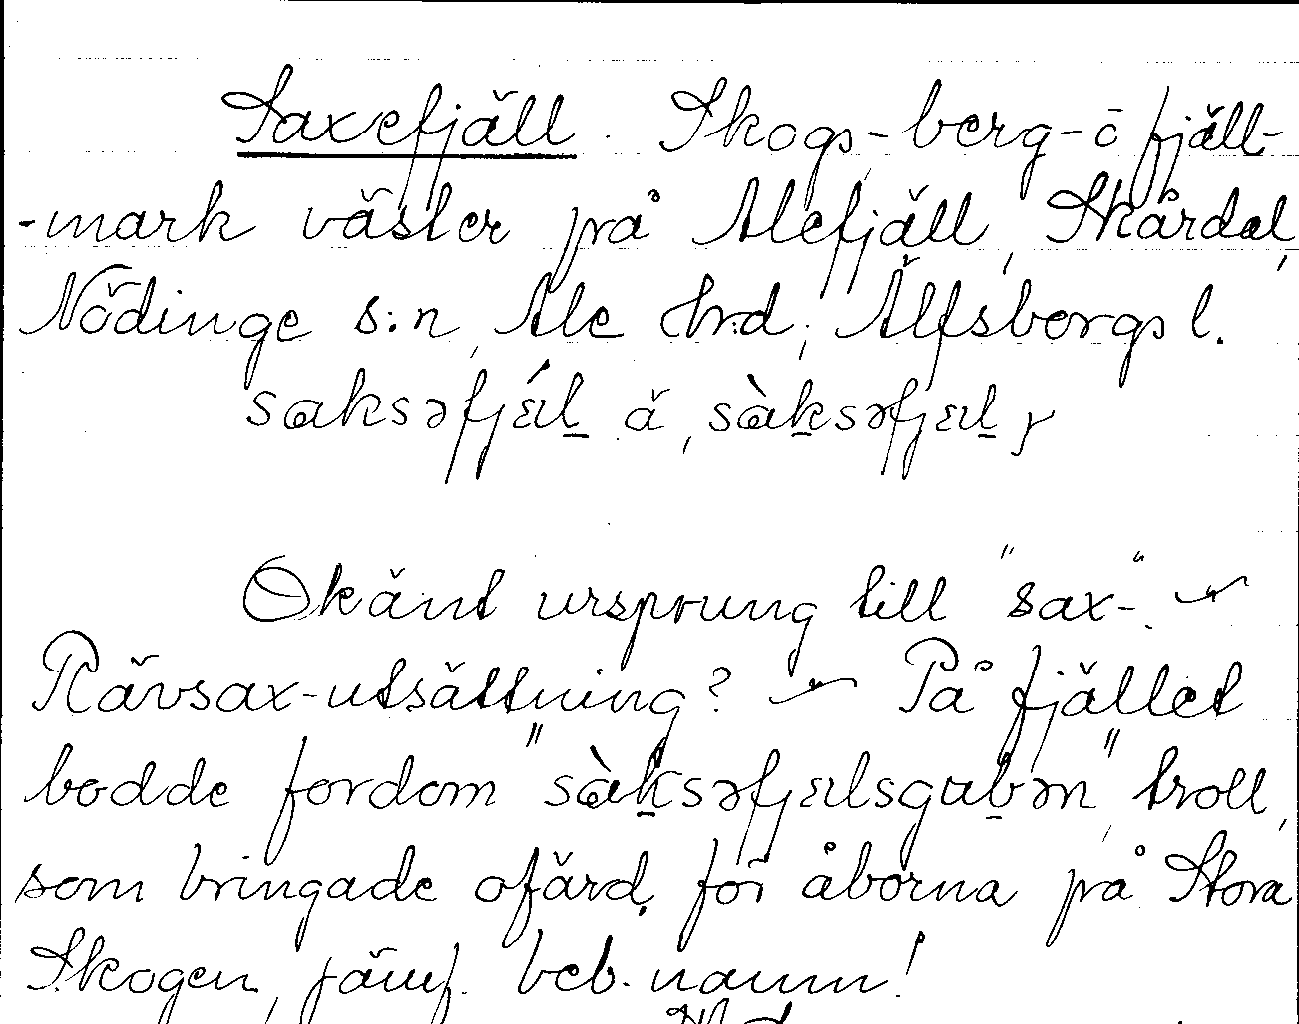 Saxefjäll. Skogs-berg-ō fjäll-
-mark väster på Alefjäll, Skårdal,
Nödinge s:n, Ale hrd, Älfsborgs l.
saksəfjǽl å, sàksəfjæl,
Okänt ursprung till "sax-".
Rävsax-utsättning? På fjället
bodde fordom "sàksəfjælsgubən", troll,
som bringade ofärd, för åborna på Stora
Skogen, jämf. beb.namn!